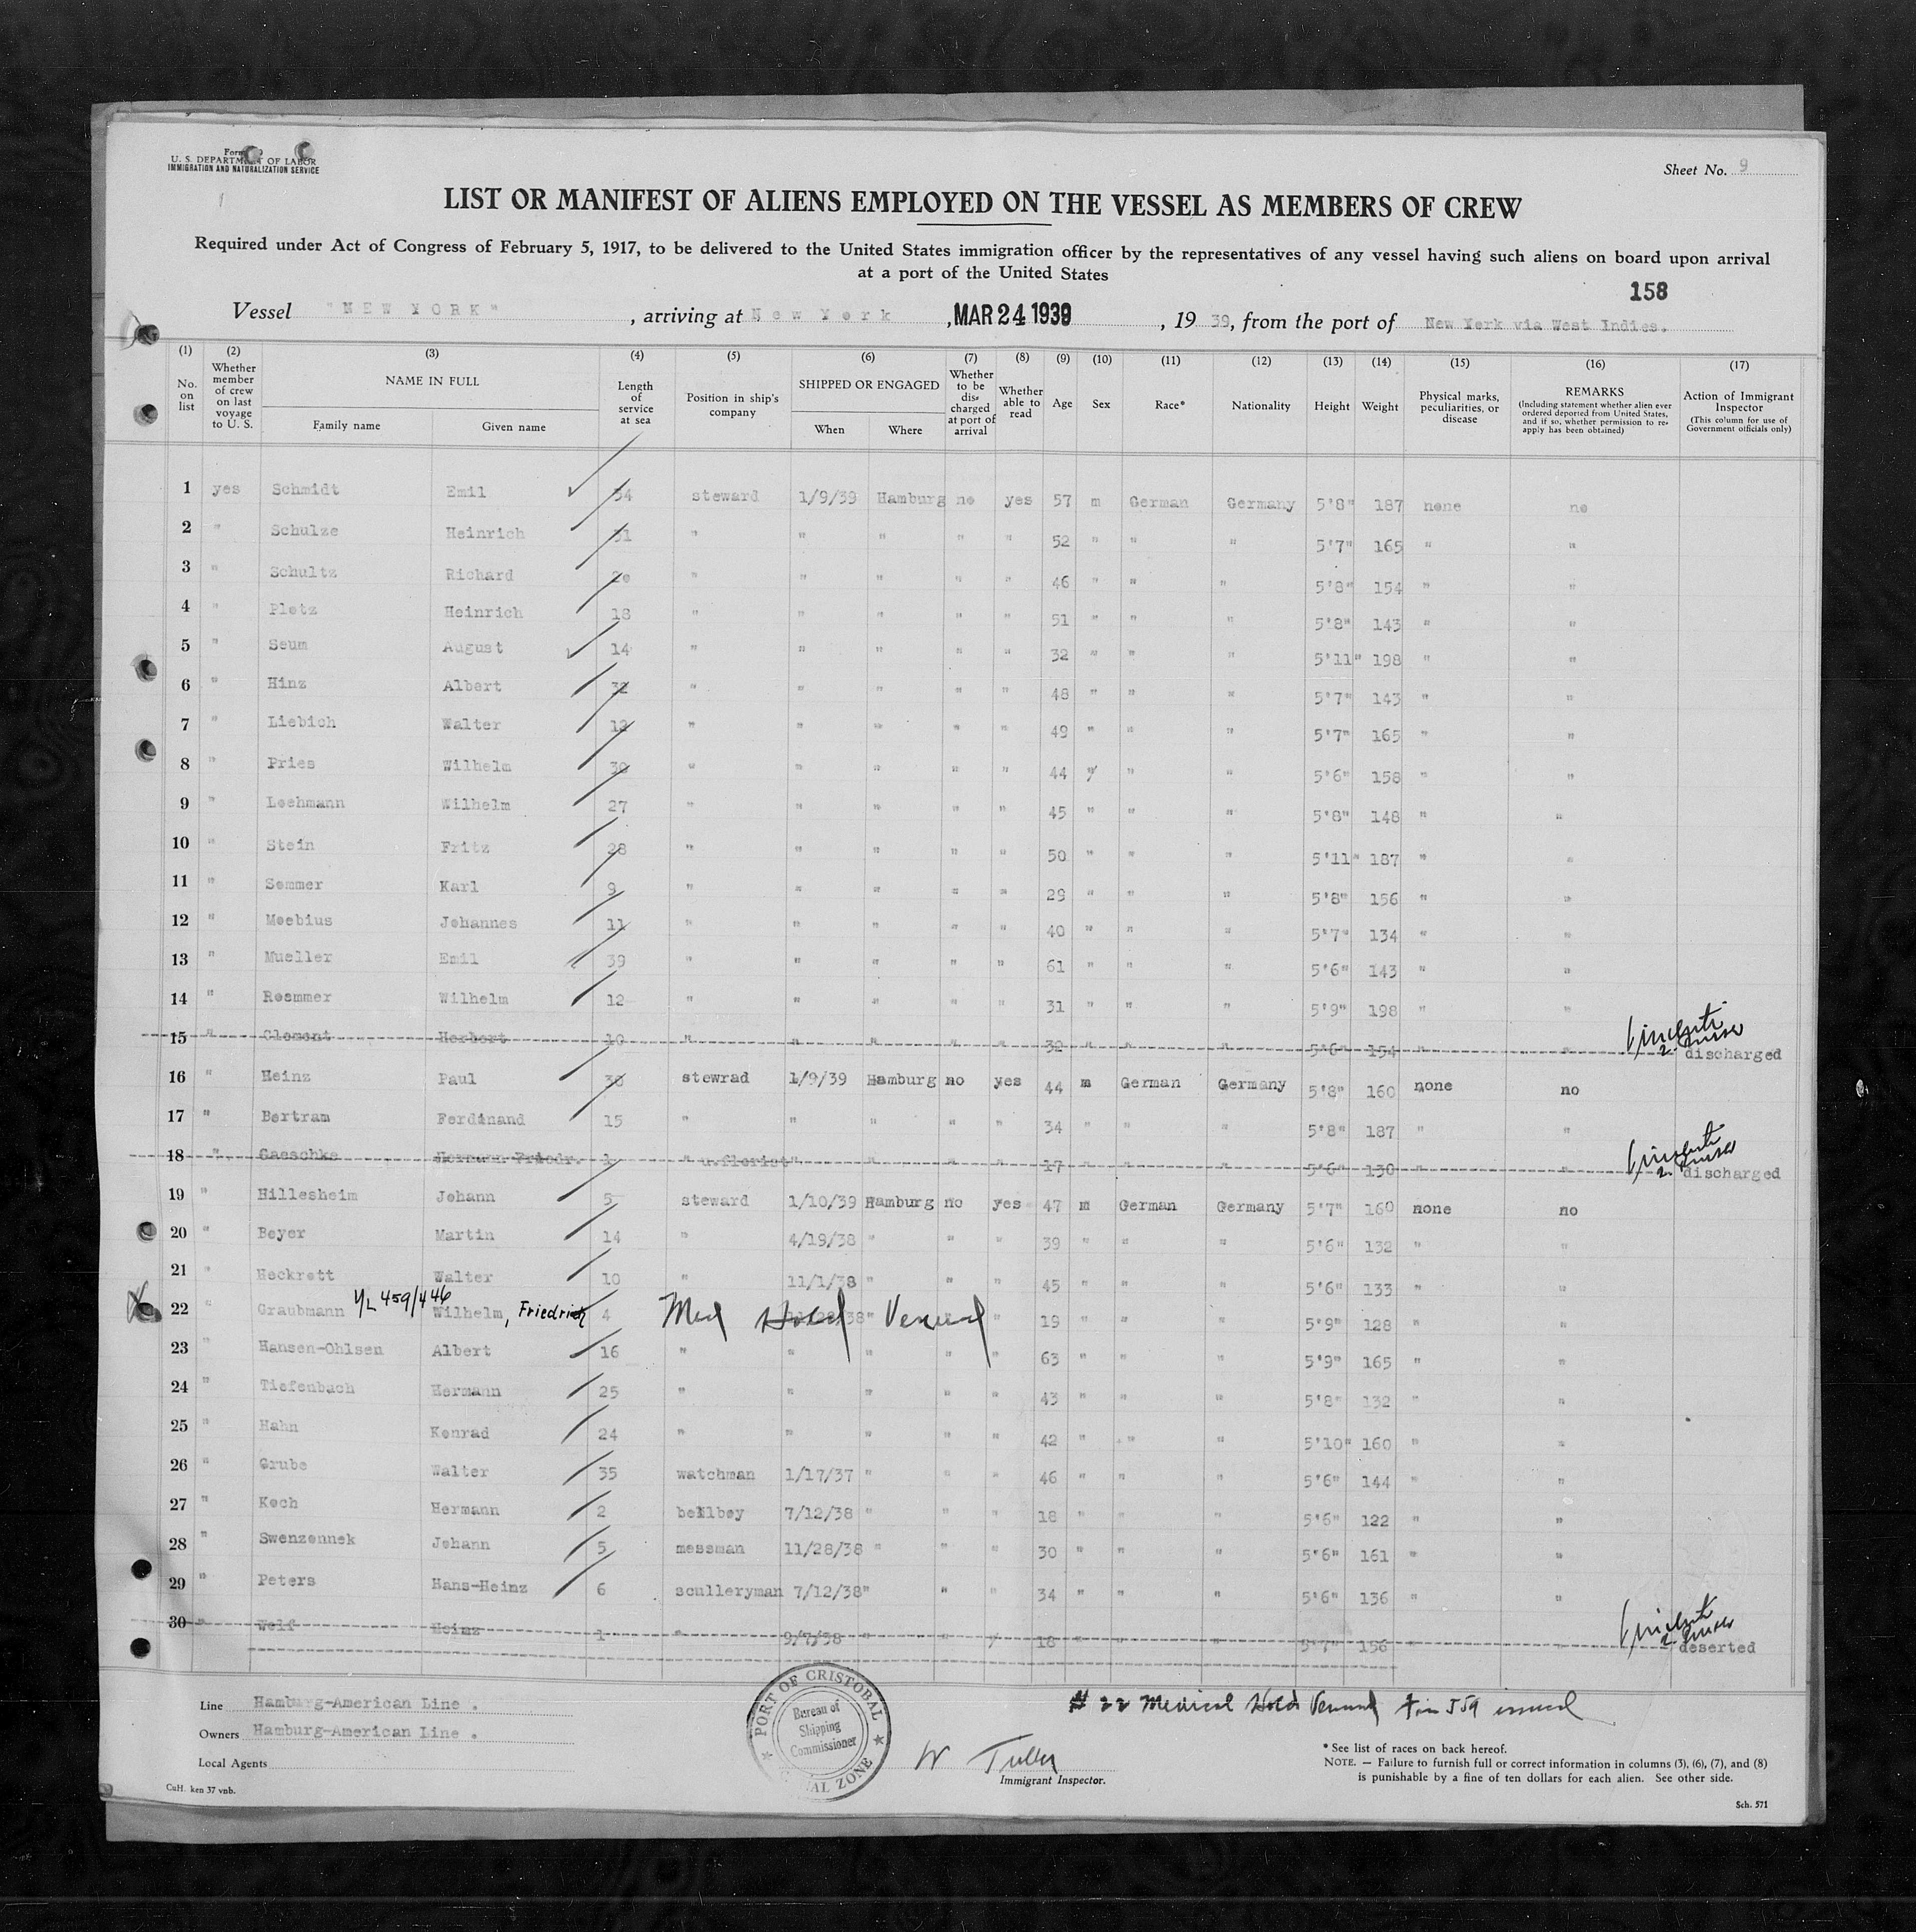 Form
U. S. DEPARTMENT OF LABOR
IMMIGRATION AND NATURALIZATION SERVICE
Sheet No. 9
LIST OR MANIFEST OF ALIENS EMPLOYED ON THE VESSEL AS MEMBERS OF CREW
Required under Act of Congress of February 5, 1917, to be delivered to the United States immigration officer by the representatives of any vessel having such aliens on board upon arrival
at a port of the United States
158
Vessel "NEW YORK", arriving at New York, MAR 24 1939, 19 39, from the port of New York via West Indies.
(1) (2) (3) (4) (5) (6) (7) (8) (9) (10) (11) (12) (13) (14) (15) (16) (17)
No. on list
Whether member of crew on last voyage to U. S.
NAME IN FULL
Family name Given name
Length of service at sea
Position in ship's company
SHIPPED OR ENGAGED
When Where
Whether to be discharged at port of arrival
Whether able to read
Age Sex Race* Nationality Height Weight
Physical marks, peculiarities, or disease
REMARKS
(Including statement whether alien ever ordered deported from United States, and if so, whether permission to reapply has been obtained)
Action of Immigrant Inspector
(This column for use of Government officials only)
1 yes Schmidt Emil 34 steward 1/9/39 Hamburg no yes 57 m German Germany 5'8" 187 none no
2 " Schulze Heinrich 31 " " " " " 52 " " " 5'7" 165 " "
3 " Schultz Richard 20 " " " " " 46 " " " 5'8" 154 " "
4 " Pletz Heinrich 18 " " " " " 51 " " " 5'8" 143 " "
5 " Seum August 14 " " " " " 32 " " " 5'11" 198 " "
6 " Hinz Albert 32 " " " " " 48 " " " 5'7" 143 " "
7 " Liebich Walter 12 " " " " " 49 " " " 5'7" 165 " "
8 " Pries Wilhelm 30 " " " " " 44 " " " 5'6" 158 " "
9 " Lochmann Wilhelm 27 " " " " " 45 " " " 5'8" 148 " "
10 " Stein Fritz 28 " " " " " 50 " " " 5'11" 187 " "
11 " Sommer Karl 9 " " " " " 29 " " " 5'8" 156 " "
12 " Moebius Johannes 11 " " " " " 40 " " " 5'7" 134 " "
13 " Mueller Emil 39 " " " " " 61 " " " 5'6" 143 " "
14 " Roemmer Wilhelm 12 " " " " " 31 " " " 5'9" 198 " "
15 " Clement Herbert 10 " " " " " 32 " " " 5'6" 154 " " discharged
16 " Heinz Paul 30 stewrad 1/9/39 Hamburg no yes 44 m German Germany 5'8" 160 none no
17 " Bertram Ferdinand 15 " " " " " 34 " " " 5'8" 187 " "
18 " Gaeschke Hermann Friedr. 1 " u.florist " " " " 17 " " " 5'6" 130 " " discharged
19 " Hillesheim Johann 5 steward 1/10/39 Hamburg no yes 47 m German Germany 5'7" 160 none no
20 " Beyer Martin 14 " 4/19/38 " " " 39 " " " 5'6" 132 " "
21 " Heckrett Walter 10 " 11/1/38 " " " 45 " " " 5'6" 133 " "
22 " Graubmann YL 459/446 Wilhelm, Friedrich 4 Med Hold Venereal 11/28/38 " " 19 " " " 5'9" 128 " "
23 " Hansen-Ohlsen Albert 16 " " " " " 63 " " " 5'9" 165 " "
24 " Tiefenbach Hermann 25 " " " " " 43 " " " 5'8" 132 " "
25 " Hahn Konrad 24 " " " " " 42 " " " 5'10" 160 " "
26 " Grube Walter 35 watchman 1/17/37 " " " 46 " " " 5'6" 144 " "
27 " Koch Hermann 2 bellboy 7/12/38 " " " 18 " " " 5'6" 122 " "
28 " Swenzonnek Johann 5 messman 11/28/38 " " " 30 " " " 5'6" 161 " "
29 " Peters Hans-Heinz 6 sculleryman 7/12/38 " " " 34 " " " 5'6" 136 " "
30 " Wolf Heinz 1 " 9/7/38 " " " 18 " " " 5'7" 156 " " deserted
Line Hamburg-American Line .
Owners Hamburg-American Line .
Local Agents
CuH. ken 37 vnb.
PORT OF CRISTOBAL
Bureau of Shipping Commissioner
CANAL ZONE
# 22 Medical Hold Venereal issued
W Tuller
Immigrant Inspector.
* See list of races on back hereof.
NOTE. — Failure to furnish full or correct information in columns (3), (6), (7), and (8)
is punishable by a fine of ten dollars for each alien. See other side.
Sch. 571